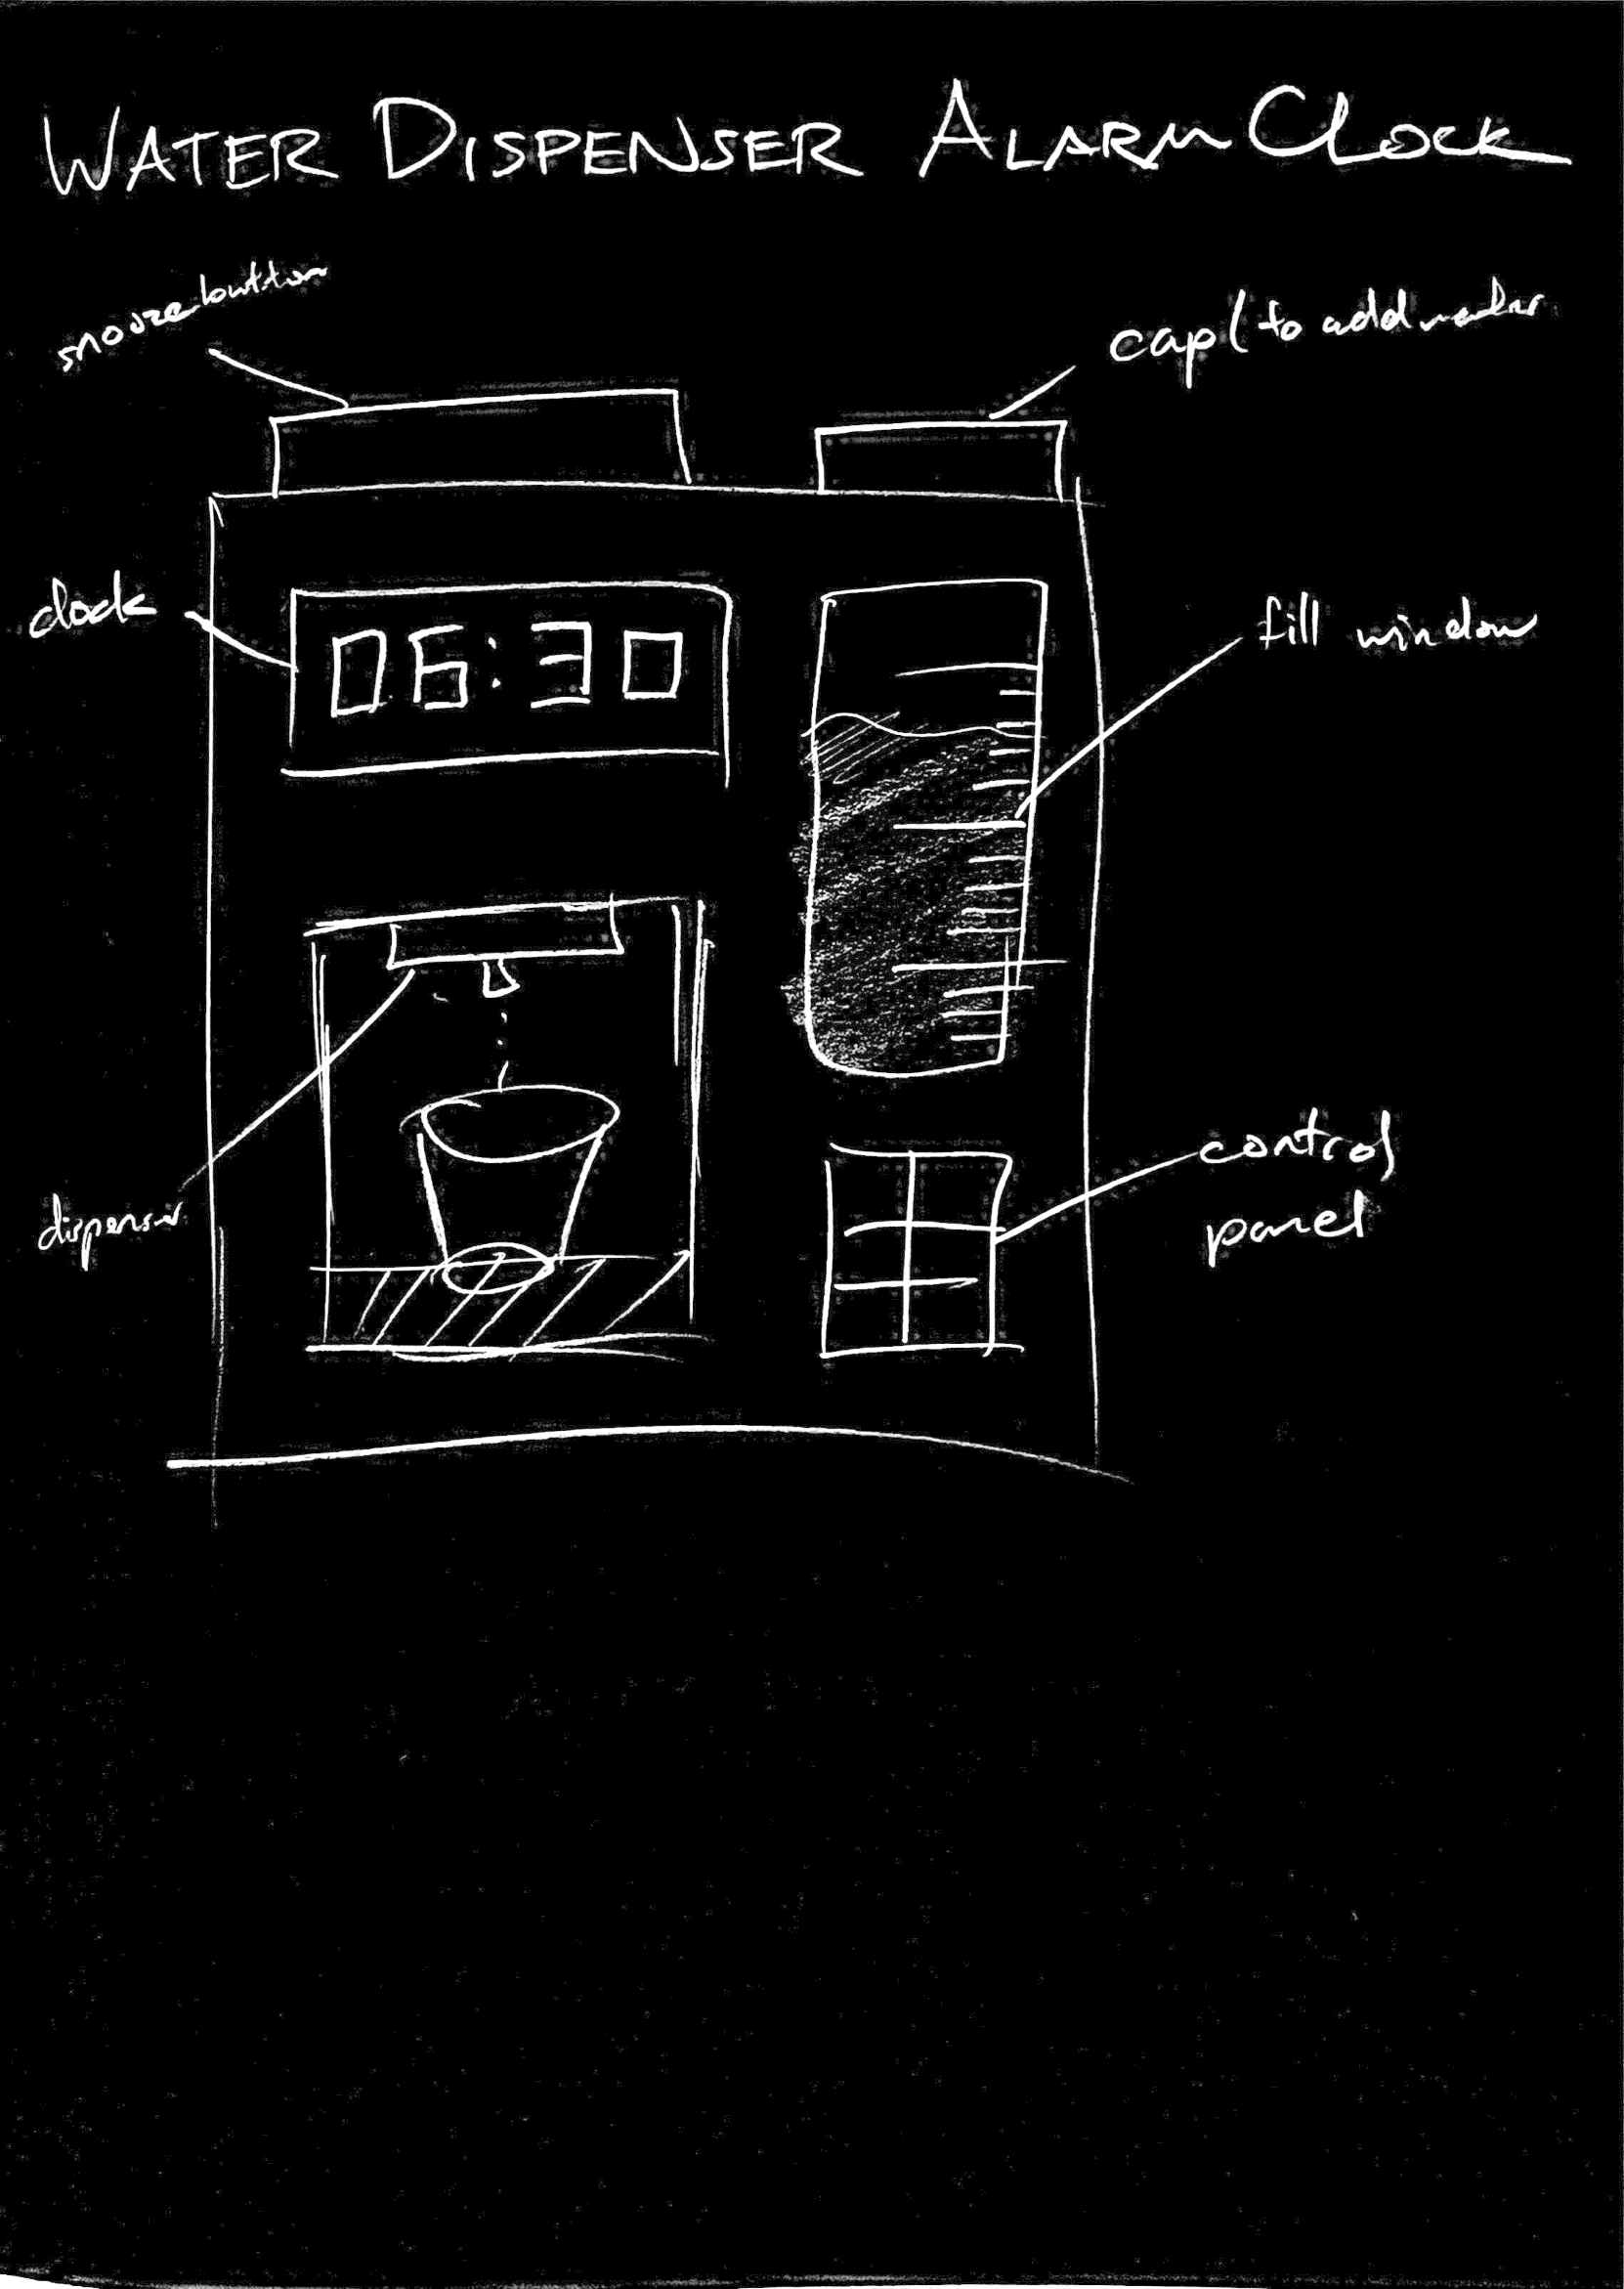 WATER DISPENSER ALARM CLOCK
snooze button
cap (to add water
clock
06:30
fill window
dispenser
control
panel